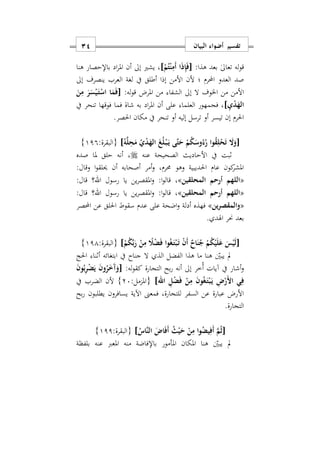 تفسير أضواء البيان
٣٤
قوله تعالىٰ بعد هذا: [فَإِذَا أَمِنْتُمْ]، يشير إلى أن المراد بالإحصار هنا
صد العدو المحرم ؛ لأن الأمن إذا أطلق في لغة العرب ينصرف إلى
الأمن من الخوف لا إلى الشفاء من المرض قوله: [فَمَا اسْتَيْسَرَ مِنَ
الْهَدْيِ]، فجمهور العلماء على أن المراد به شاة فما فوقها تنحر في
الحرم إن تيسر أو ترسل إليه أو تنحر في مكان الحصر.
[وَلَا تَحْلِقُوا رُءُوسَكُمْ حَتَّىٰ يَبْلُغَ الْهَدْيُ مَحِلَّهُ] {البقرة:١٩٦}
ثبت في الأحاديث الصحيحة عنه ﷺ، أنه حلق لما صده
المشركون عام الحديبية وهو محرم، وأمر أصحابه أن يحلقوا وقال:
«اللّهم أرحم المحلقين»، قالوا: والمقصرين يا رسول الله؟ قال:
«اللّهم أرحم المحلقين»، قالوا: والمقصرين يا رسول الله؟ قال:
«والمقصرين» فهذه أدلة واضحة على عدم سقوط الحلق عن المحصر
بعد نحر الهدي.
[لَيْسَ عَلَيْكُمْ جُنَاحٌ أَنْ تَبْتَغُوا فَضْلًا مِنْ رَبِّكُمْ] {البقرة:١٩٨}
لم يبيّن هنا ما هذا الفضل الذي لا جناح في ابتغائه أثناء الحج
وأشار في آيات أُخر إلى أنه ربح التجارة كقوله: [وَآخَرُونَ يَضْرِبُونَ
فِي الْأَرْضِ يَبْتَغُونَ مِنْ فَضْلِ اللهِ] {المزمل:٢٠} لأن الضرب في
الأرض عبارة عن السفر للتجارة، فمعنى الآية يسافرون يطلبون ربح
التجارة.
[ثُمَّ أَفِيضُوا مِنْ حَيْثُ أَفَاضَ النَّاسُ] {البقرة:١٩٩}
لم يبيّن هنا المكان المأمور بالإفاضة منه المعبر عنه بلفظة